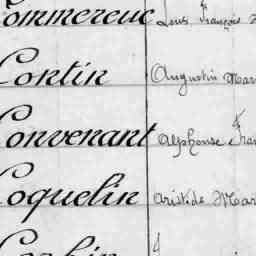 Commereuc Louis François
Contin Augustin Mar
Convenant Alphonse Fran
Coquelin Aristide Mar
Corbin